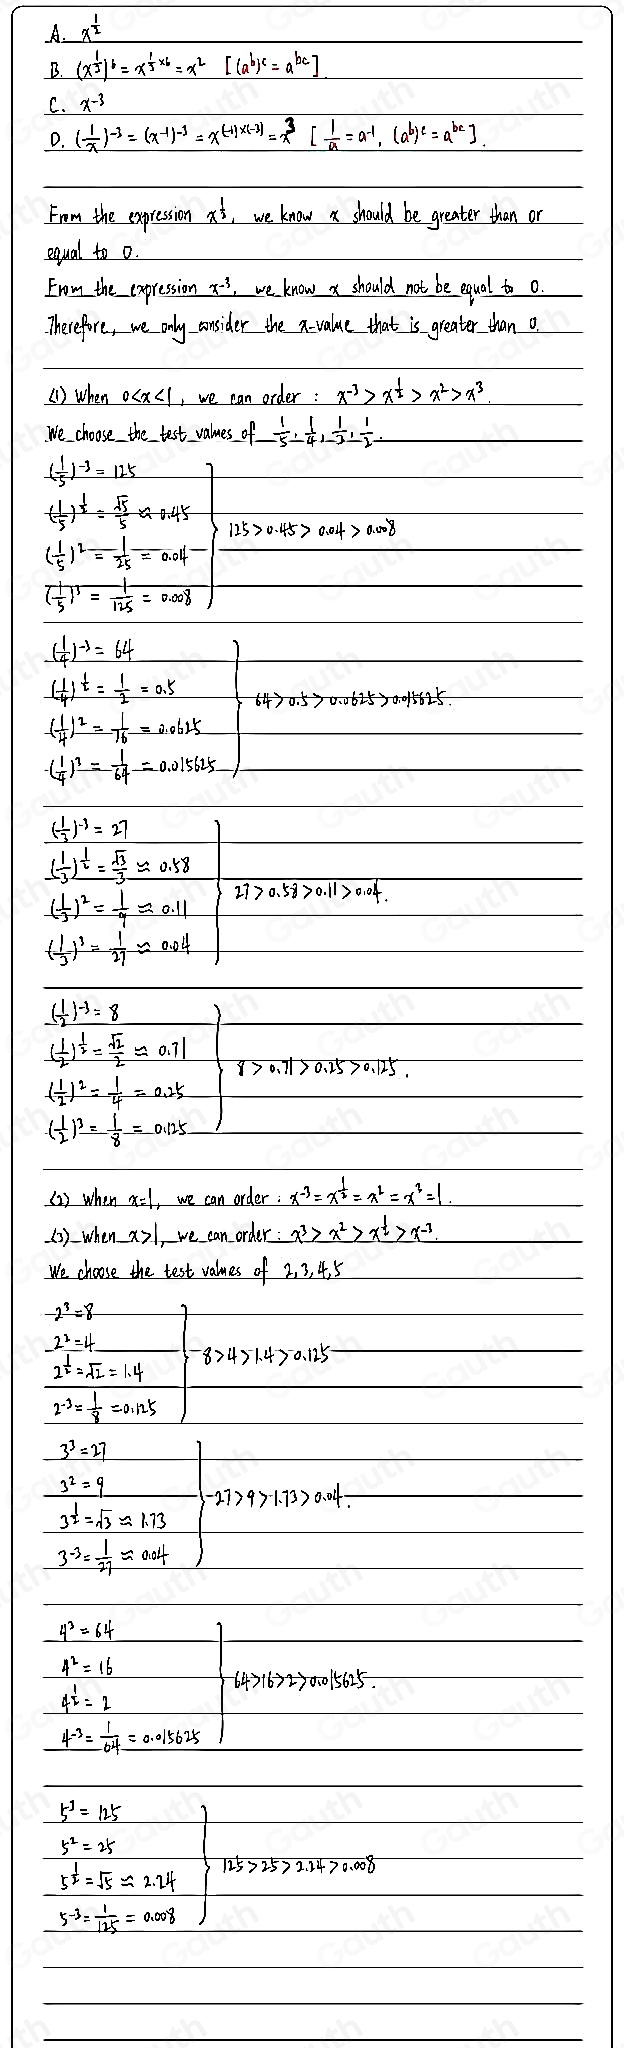 A. x^{1/2}
B. (x^{1/3})^6 = x^{1/3 × 6} = x^2 [(a^b)^c = a^{bc}].
C. x^{-3}
D. (1/x)^{-3} = (x^{-1})^{-3} = x^{(-1)×(-3)} = x^3 [1/a = a^{-1}, (a^b)^c = a^{bc}].
From the expression x^{1/2}, we know x should be greater than or
equal to 0.
From the expression x^{-3}, we know x should not be equal to 0.
Therefore, we only consider the x-value that is greater than 0.
(1) When 0<x<1, we can order : x^{-3} > x^{1/2} > x^2 > x^3.
We choose the test values of 1/5, 1/4, 1/3, 1/2.
(1/5)^{-3} = 125
(1/5)^{1/2} = √5/5 ≈ 0.45
125 > 0.45 > 0.04 > 0.008
(1/5)^2 = 1/25 = 0.04
(1/5)^3 = 1/125 = 0.008
(1/4)^{-3} = 64
(1/4)^{1/2} = 1/2 = 0.5
64 > 0.5 > 0.0625 > 0.015625.
(1/4)^2 = 1/16 = 0.0625
(1/4)^3 = 1/64 = 0.015625
(1/3)^{-3} = 27
(1/3)^{1/2} = √3/3 ≈ 0.58
27 > 0.58 > 0.11 > 0.04.
(1/3)^2 = 1/9 ≈ 0.11
(1/3)^3 = 1/27 ≈ 0.04
(1/2)^{-3} = 8
(1/2)^{1/2} = √2/2 ≈ 0.71
8 > 0.71 > 0.25 > 0.125.
(1/2)^2 = 1/4 = 0.25
(1/2)^3 = 1/8 = 0.125
(2) When x=1, we can order : x^{-3} = x^{1/2} = x^2 = x^3 = 1.
(3) When x>1, we can order : x^3 > x^2 > x^{1/2} > x^{-3}.
We choose the test values of 2,3,4,5
2^3 = 8
2^2 = 4
8 > 4 > 1.4 > 0.125
2^{1/2} = √2 = 1.4
2^{-3} = 1/8 = 0.125
3^3 = 27
3^2 = 9
27 > 9 > 1.73 > 0.04.
3^{1/2} = √3 ≈ 1.73
3^{-3} = 1/27 ≈ 0.04
4^3 = 64
4^2 = 16
64 > 16 > 2 > 0.015625.
4^{1/2} = 2
4^{-3} = 1/64 = 0.015625
5^3 = 125
5^2 = 25
125 > 25 > 2.24 > 0.008
5^{1/2} = √5 ≈ 2.24
5^{-3} = 1/125 = 0.008